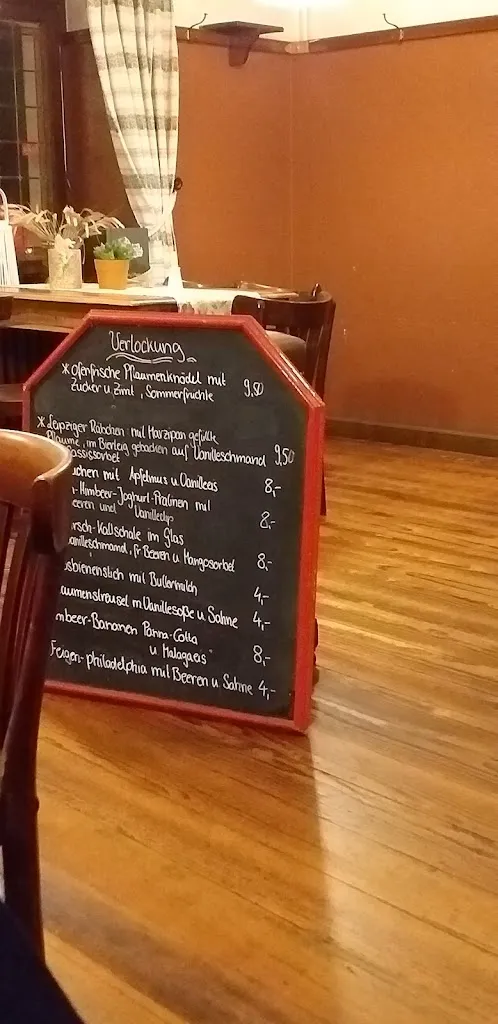 Verlockung
* ofenfrische Pflaumenknödel mit
Zucker u. Zimt, Sommerfrüchte 9,50
* Leipziger Räbchen mit Marzipan gefüllte
Pflaume, im Bierteig gebacken auf Vanilleschmand 9,50
assissorbet
uchen mit Apfelmus u Vanilleeis 8,-
n-Himbeer-Joghurt-Pralinen mil
eeren und Vanilledip 8,-
irsch-Kaltschale im Glas
anilleschmand, fr Beeren u Mangosorbet 8,-
sbienenstich mit Buttermilch 4,-
aumenstreusel m. Vanillesoße u. Sahne 4,-
mbeer-Bananen Panna-Cotta
u Malagaeis 8,-
Feigen-philadelphia mit Beeren u. Sahne 4,-